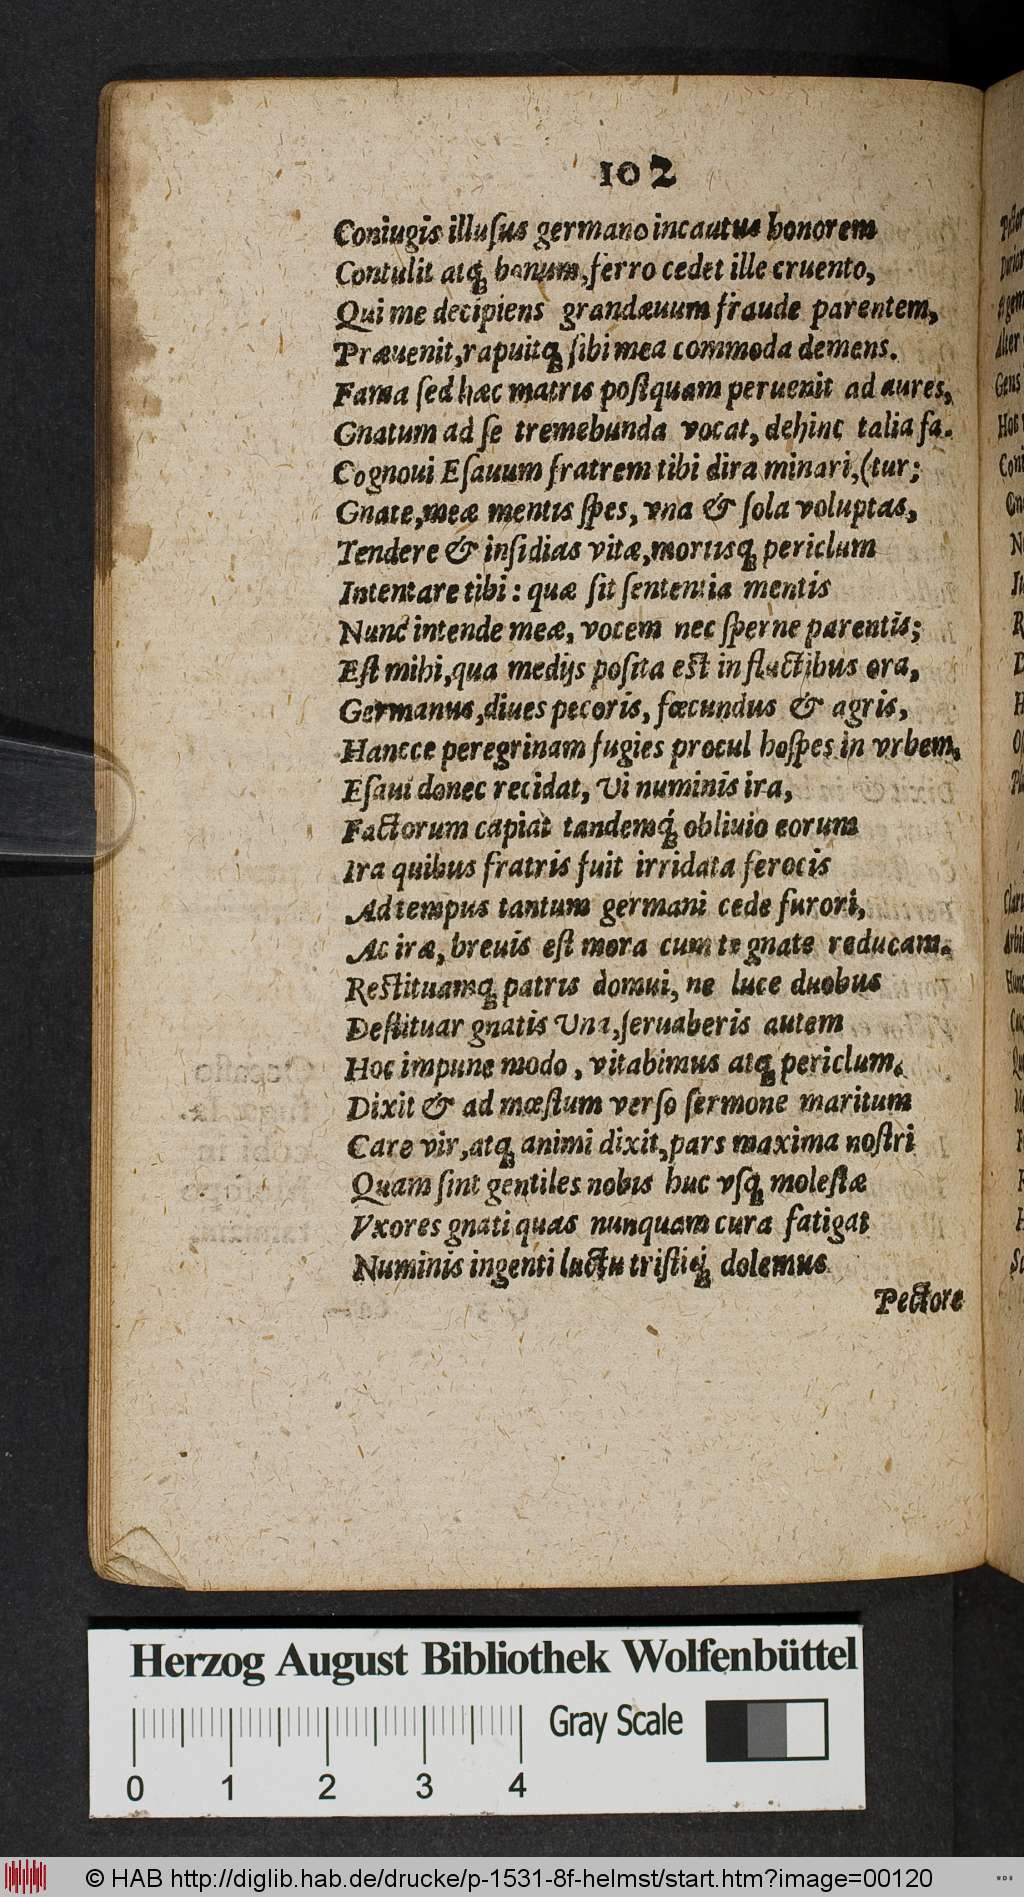 102
Coniugis illuſus germano incautus honorem
Contulit atq́; bonum, ferro cedet ille cruento,
Qui me decipiens grandæuum fraude parentem,
Præuenit, rapuitq; ſibi mea commoda demens.
Fama ſed hæc matris poſtquam peruenit ad aures,
Gnatum ad ſe tremebunda vocat, dehinc talia fa-
Cognoui Eſauum fratrem tibi dira minari, (tur;
Gnate, meæ mentis ſpes, vna & ſola voluptas,
Tendere & inſidias vitæ, mortisq; periclum
Intentare tibi: quæ ſit ſententia mentis
Nunc intende meæ, vocem nec ſperne parentis;
Eſt mihi, qua medijs poſita eſt in fluctibus ora,
Germanus, diues pecoris, fœcundus & agris,
Hancce peregrinam fugies procul hoſpes in vrbem,
Eſaui donec recidat, Vi numinis ira,
Factorum capiat tandemq́; obliuio eorum
Ira quibus fratris fuit irridata ferocis
Ad tempus tantum germani cede furori,
Ac iræ, breuis eſt mora cum te gnate reducam.
Reſtituamq; patris domui, ne luce duobus
Deſtituar gnatis Vna, ſeruaberis autem
Hoc impune modo, vitabimus atq; periclum.
Dixit & ad mœſtum verſo ſermone maritum
Care vir, atq; animi dixit, pars maxima noſtri
Quam ſint gentiles nobis huc vſq; moleſtæ
Vxores gnati quas nunquam cura fatigat
Numinis ingenti luctu triſtiq́; dolemus
Pectore
Herzog August Bibliothek Wolfenbüttel
Gray Scale
0 1 2 3 4
© HAB http://diglib.hab.de/drucke/p-1531-8f-helmst/start.htm?image=00120